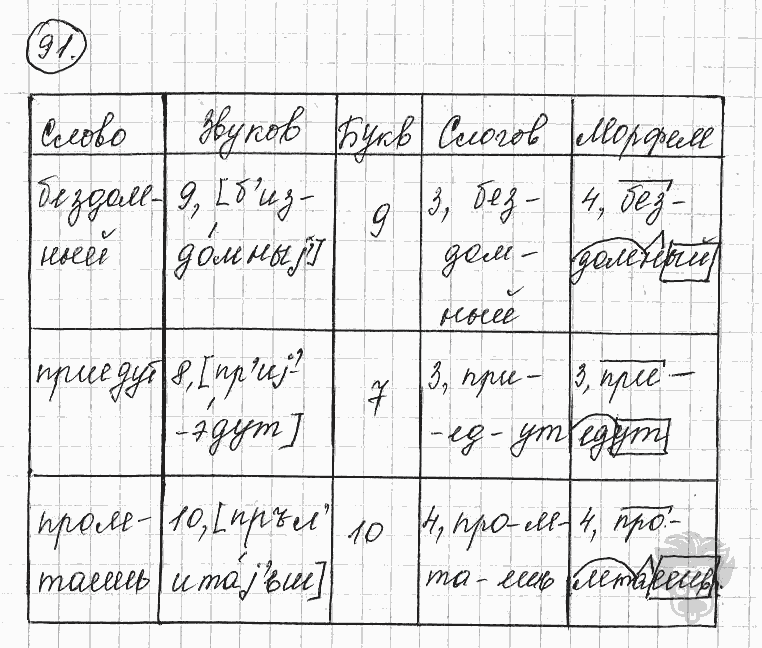 91.
Слово Звуков Букв Слогов Морфем
бездом- 9, [б'из- 9 3, без- 4, без-
ный до́мныj'] дом- домный
ный
приедут 8, [пр'иj'- 7 3, при- 3, при-
-э́дут] -ед-ут едут
проле- 10, [пръл' 10 4, про-ле- 4, про-
таешь ита́j'ьш] та-ешь летаешь